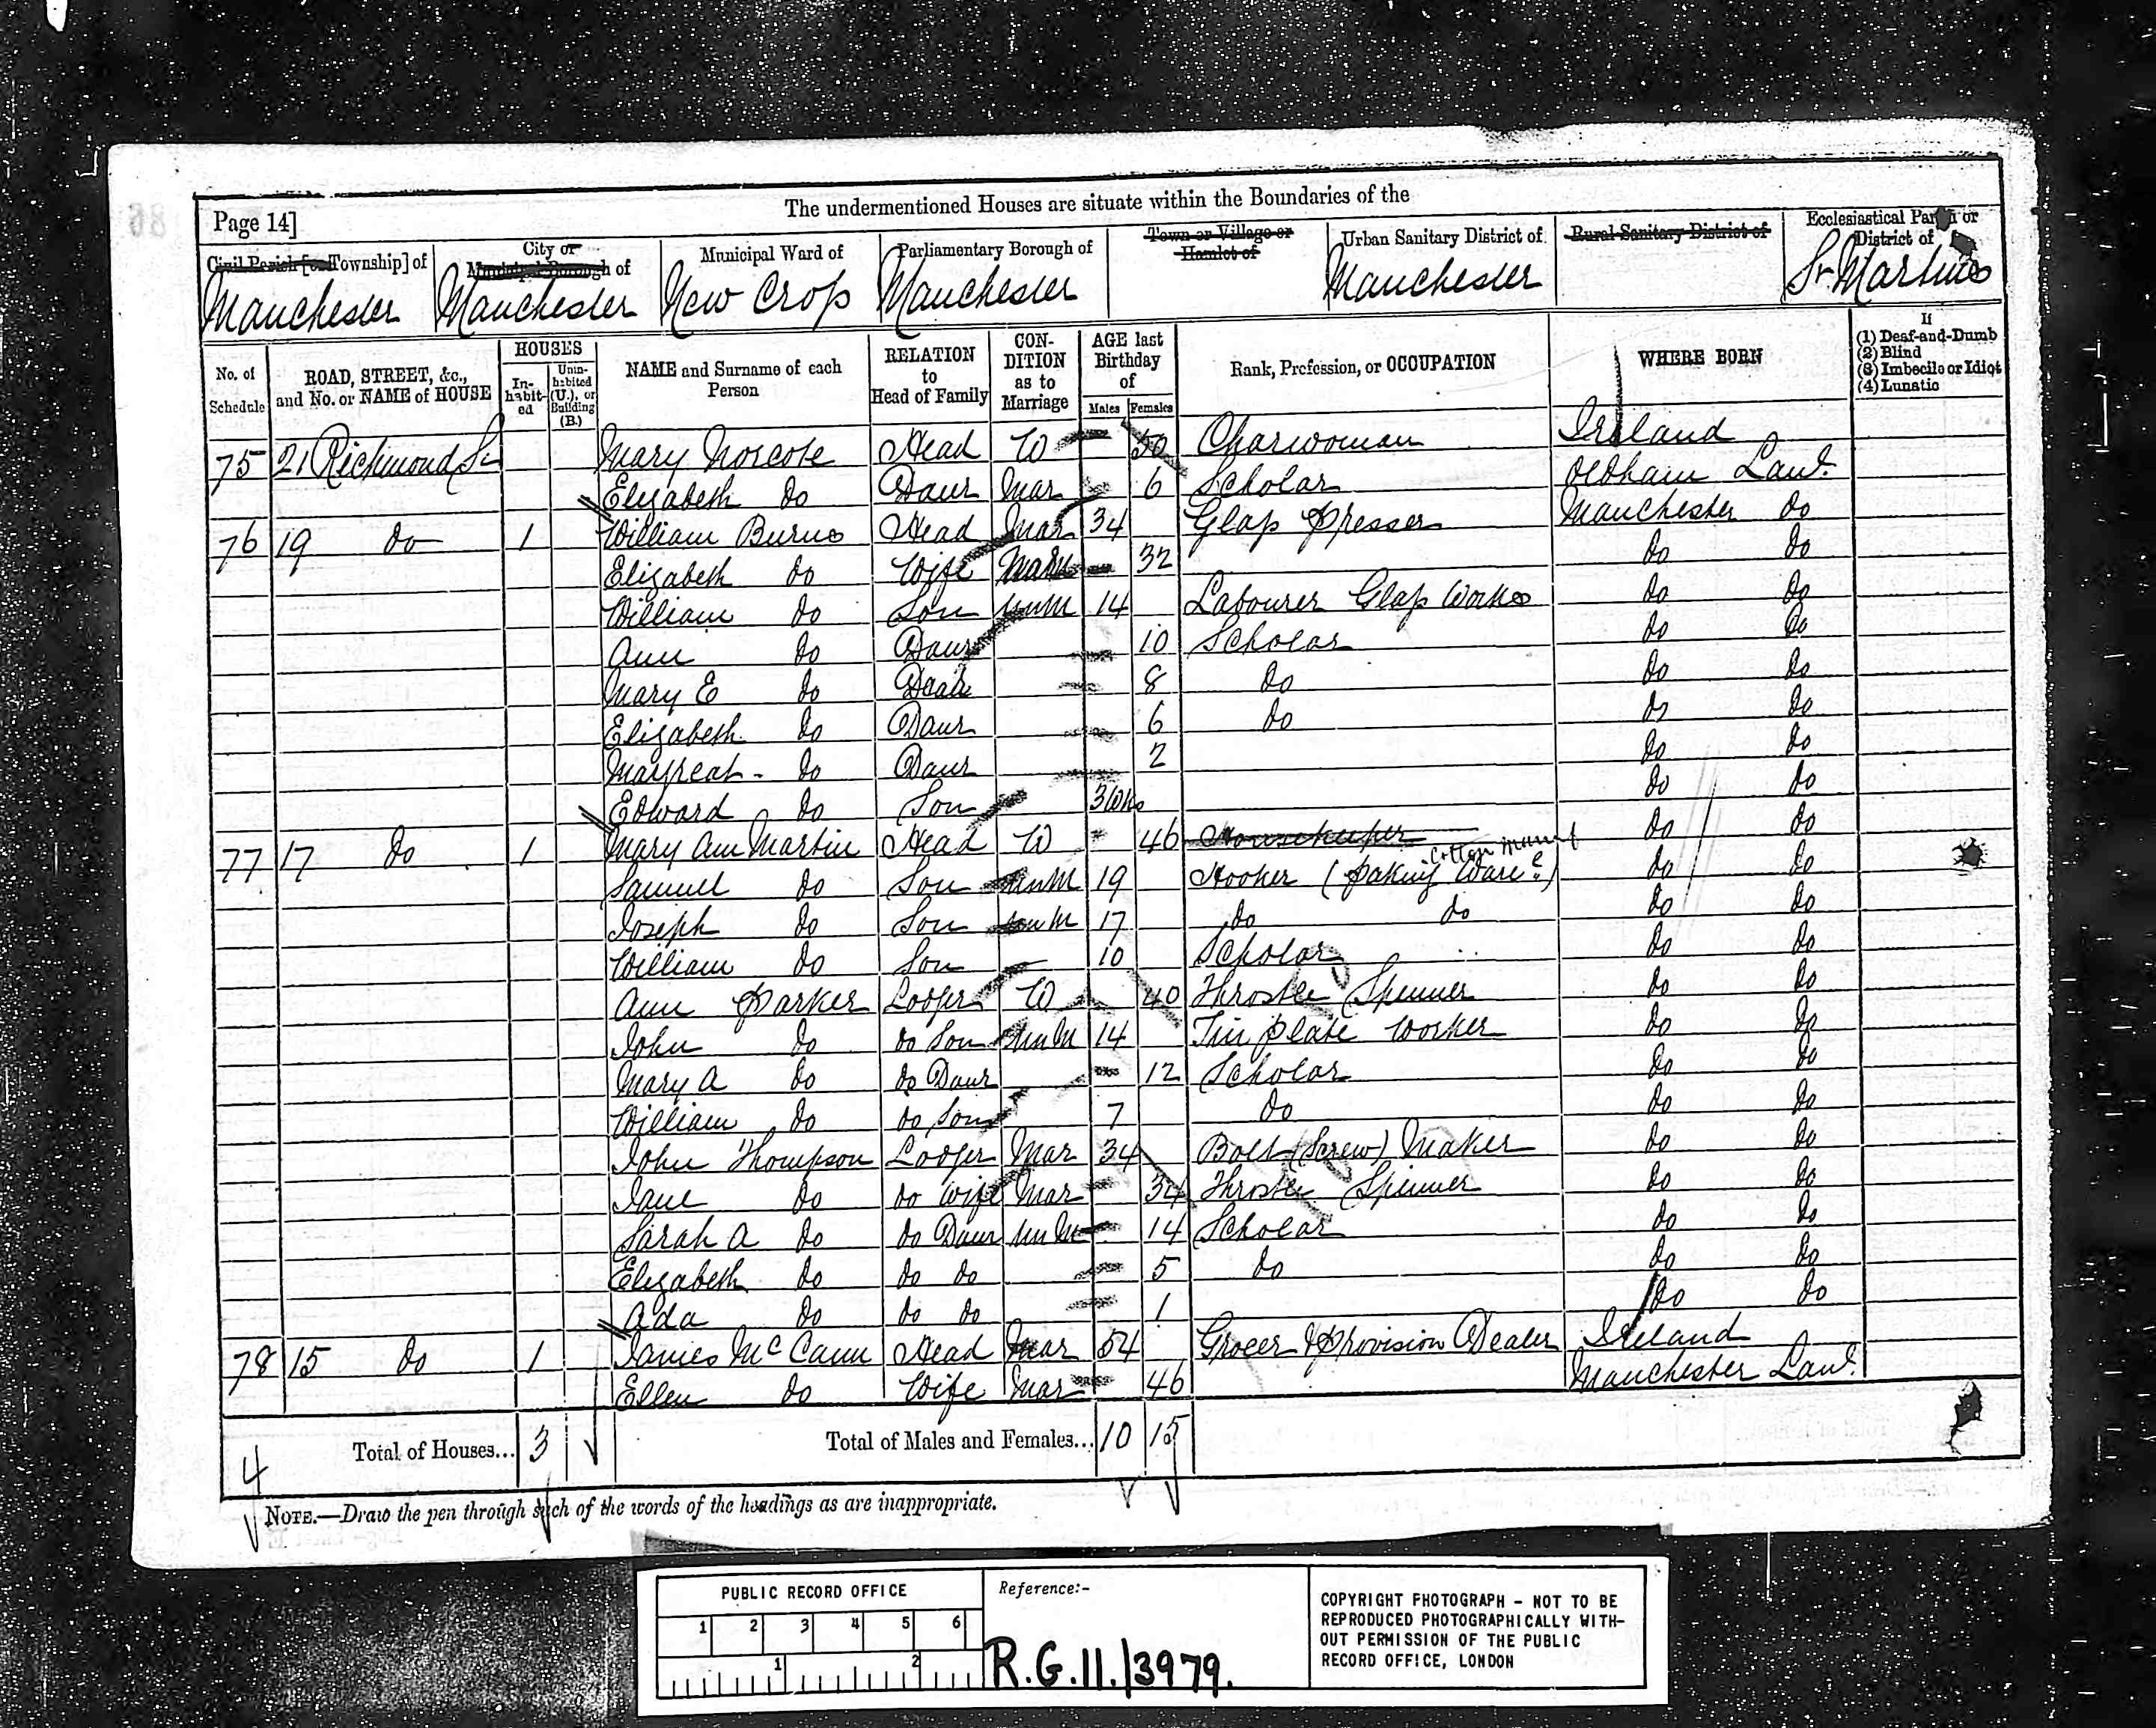 Page 14]
The undermentioned Houses are situate within the Boundaries of the
Civil Parish [or Township] of
City or Municipal Borough of
Municipal Ward of
Parliamentary Borough of
Town or Village or Hamlet of
Urban Sanitary District of
Rural Sanitary District of
Ecclesiastical Parish or District of
Manchester Manchester New Cross Manchester Manchester St Martins
No. of Schedule
ROAD, STREET, &c., and No. or NAME of HOUSE
HOUSES
In-habit-ed
Unin-habited (U.), or Building (B.)
NAME and Surname of each Person
RELATION to Head of Family
CON-DITION as to Marriage
AGE last Birthday of
Males Females
Rank, Profession, or OCCUPATION
WHERE BORN
If
(1) Deaf-and-Dumb
(2) Blind
(3) Imbecile or Idiot
(4) Lunatic
75 21 Richmond St Mary Norcote Head W 50 Charwoman Ireland
Elizabeth do Daur Mar 6 Scholar Oldham Lanc.
76 19 do 1 William Burns Head Mar 34 Glass Presser Manchester do
Elizabeth do Wife Mar 32 do do
William do Son UnM 14 Labourer Glass Works do do
Ann do Daur 10 Scholar do do
Mary E do Daur 8 do do do
Elizabeth do Daur 6 do do do
Margreat do Daur 2 do do
Edward do Son 3 Wks do do
77 17 do 1 Mary Ann Martin Head W 46 Housekeeper do do
Samuel do Son UnM 19 Hooker (paking Ware e) Cotton Manuf do do
Joseph do Son UnM 17 do do do do
William do Son 10 Scholar do do
Ann Parker Lodger W 40 Throstle Spinner do do
John do do Son UnM 14 Tin plate Worker do do
Mary A do do Daur 12 Scholar do do
William do do Son 7 do do do
John Thompson Lodger Mar 34 Bolt (Screw) Maker do do
Jane do do Wife Mar 34 Throstle Spinner do do
Sarah A do do Daur UnM 14 Scholar do do
Elizabeth do do do 5 do do do
Ada do do do 1 do do
78 15 do 1 James McCann Head Mar 54 Grocer & Provision Dealer Ireland
Ellen do Wife Mar 46 Manchester Lanc.
4 Total of Houses... 3 Total of Males and Females... 10 15
NOTE.—Draw the pen through such of the words of the headings as are inappropriate.
PUBLIC RECORD OFFICE
1 2 3 4 5 6
1 2
Reference:-
R.G.11./3979.
COPYRIGHT PHOTOGRAPH - NOT TO BE
REPRODUCED PHOTOGRAPHICALLY WITH-
OUT PERMISSION OF THE PUBLIC
RECORD OFFICE, LONDON